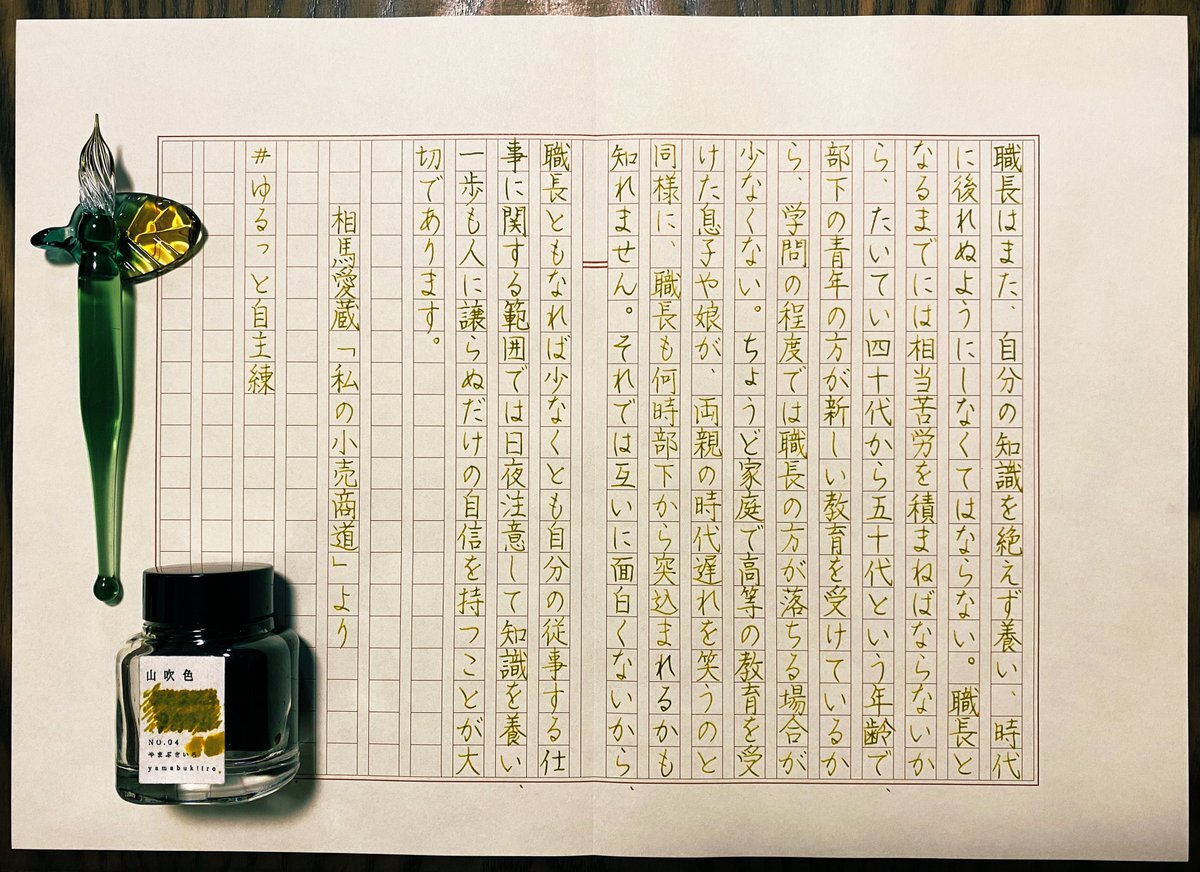 職長はまた、自分の知識を絶えず養い、時代
に後れぬようにしなくてはならない。職長と
なるまでには相当苦労を積まねばならないか
ら、たいてい四十代から五十代という年齢で、
部下の青年の方が新しい教育を受けているか
ら、学問の程度では職長の方が落ちる場合が
少なくない。ちょうど家庭で高等の教育を受
けた息子や娘が、両親の時代遅れを笑うのと
同様に、職長も何時部下から突込まれるかも
知れません。それでは互いに面白くないから、
職長ともなれば少なくとも自分の従事する仕
事に関する範囲では日夜注意して知識を養い、
一歩も人に譲らぬだけの自信を持つことが大
切であります。
相馬愛蔵「私の小売商道」より
#ゆるっと自主練
山吹色
NO.04
やまぶきいろ
yamabukiiro